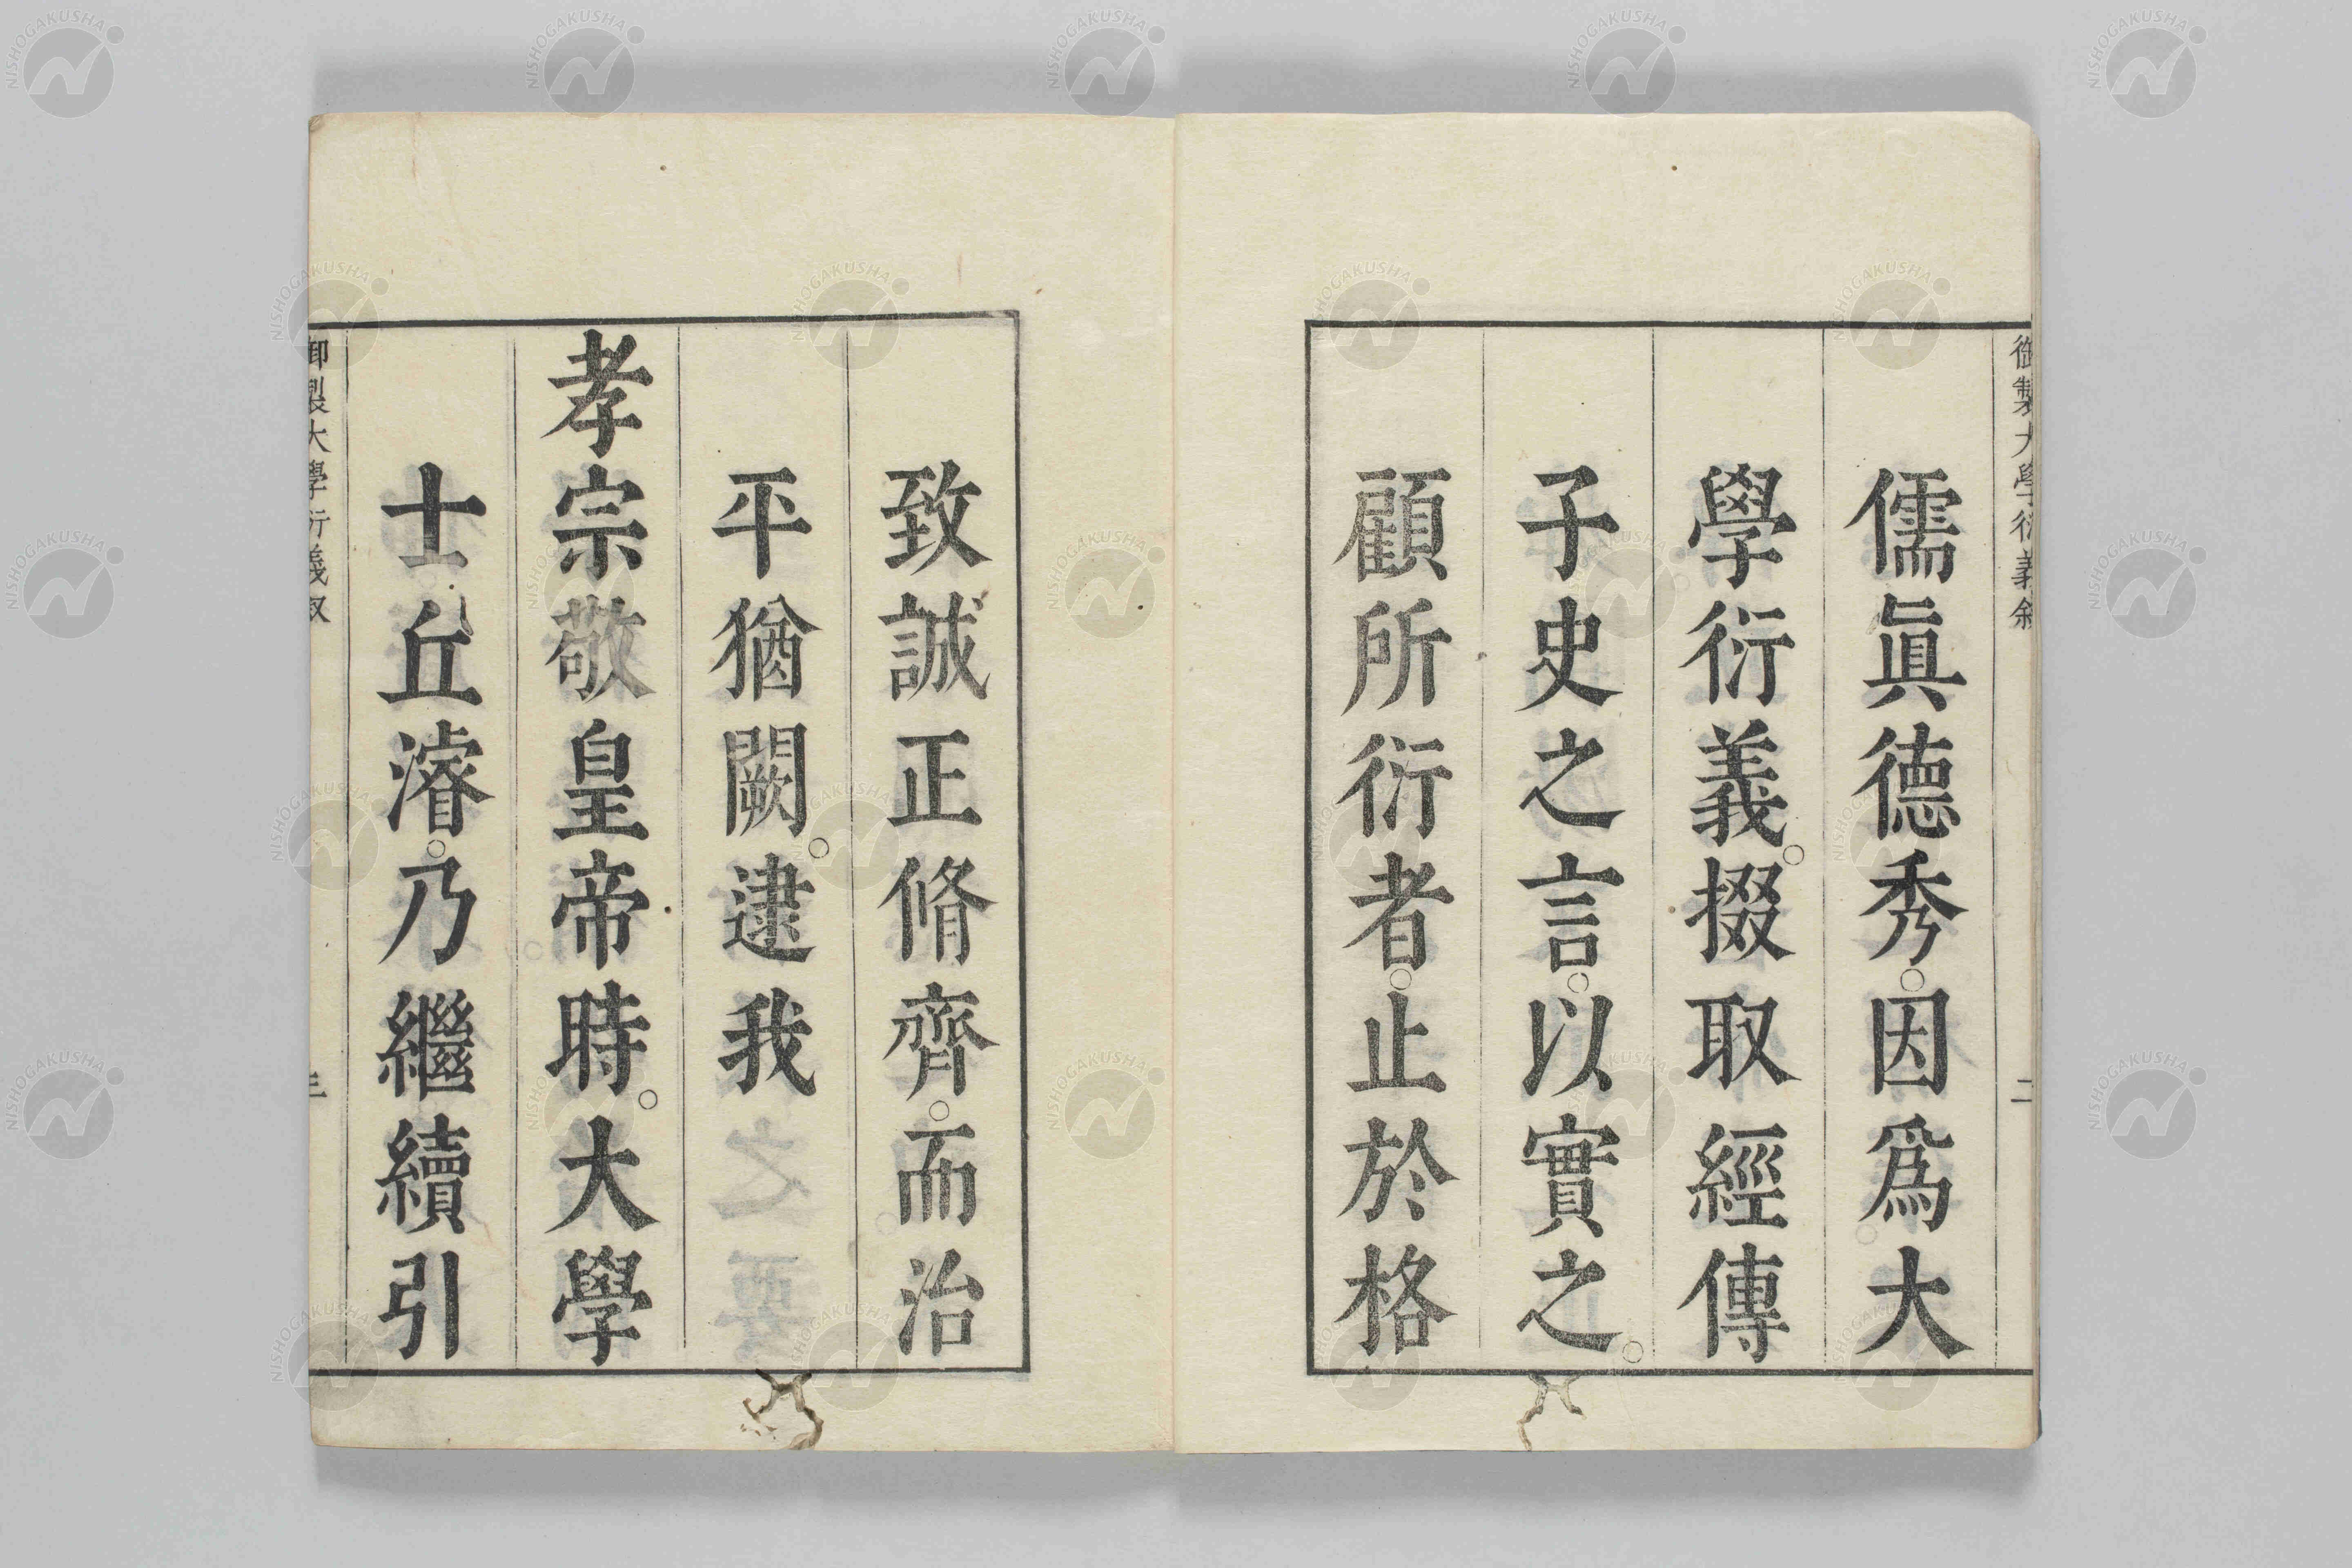 御製大學衍義叙
二
儒眞德秀。因爲大
學衍義。掇取經傳
子史之言。以實之。
顧所衍者。止於格
致誠正脩齊。而治
平猶闕。逮我
孝宗敬皇帝時。大學
士丘濬。乃繼續引
御製大學衍義叙
三
NISHOGAKUSHA